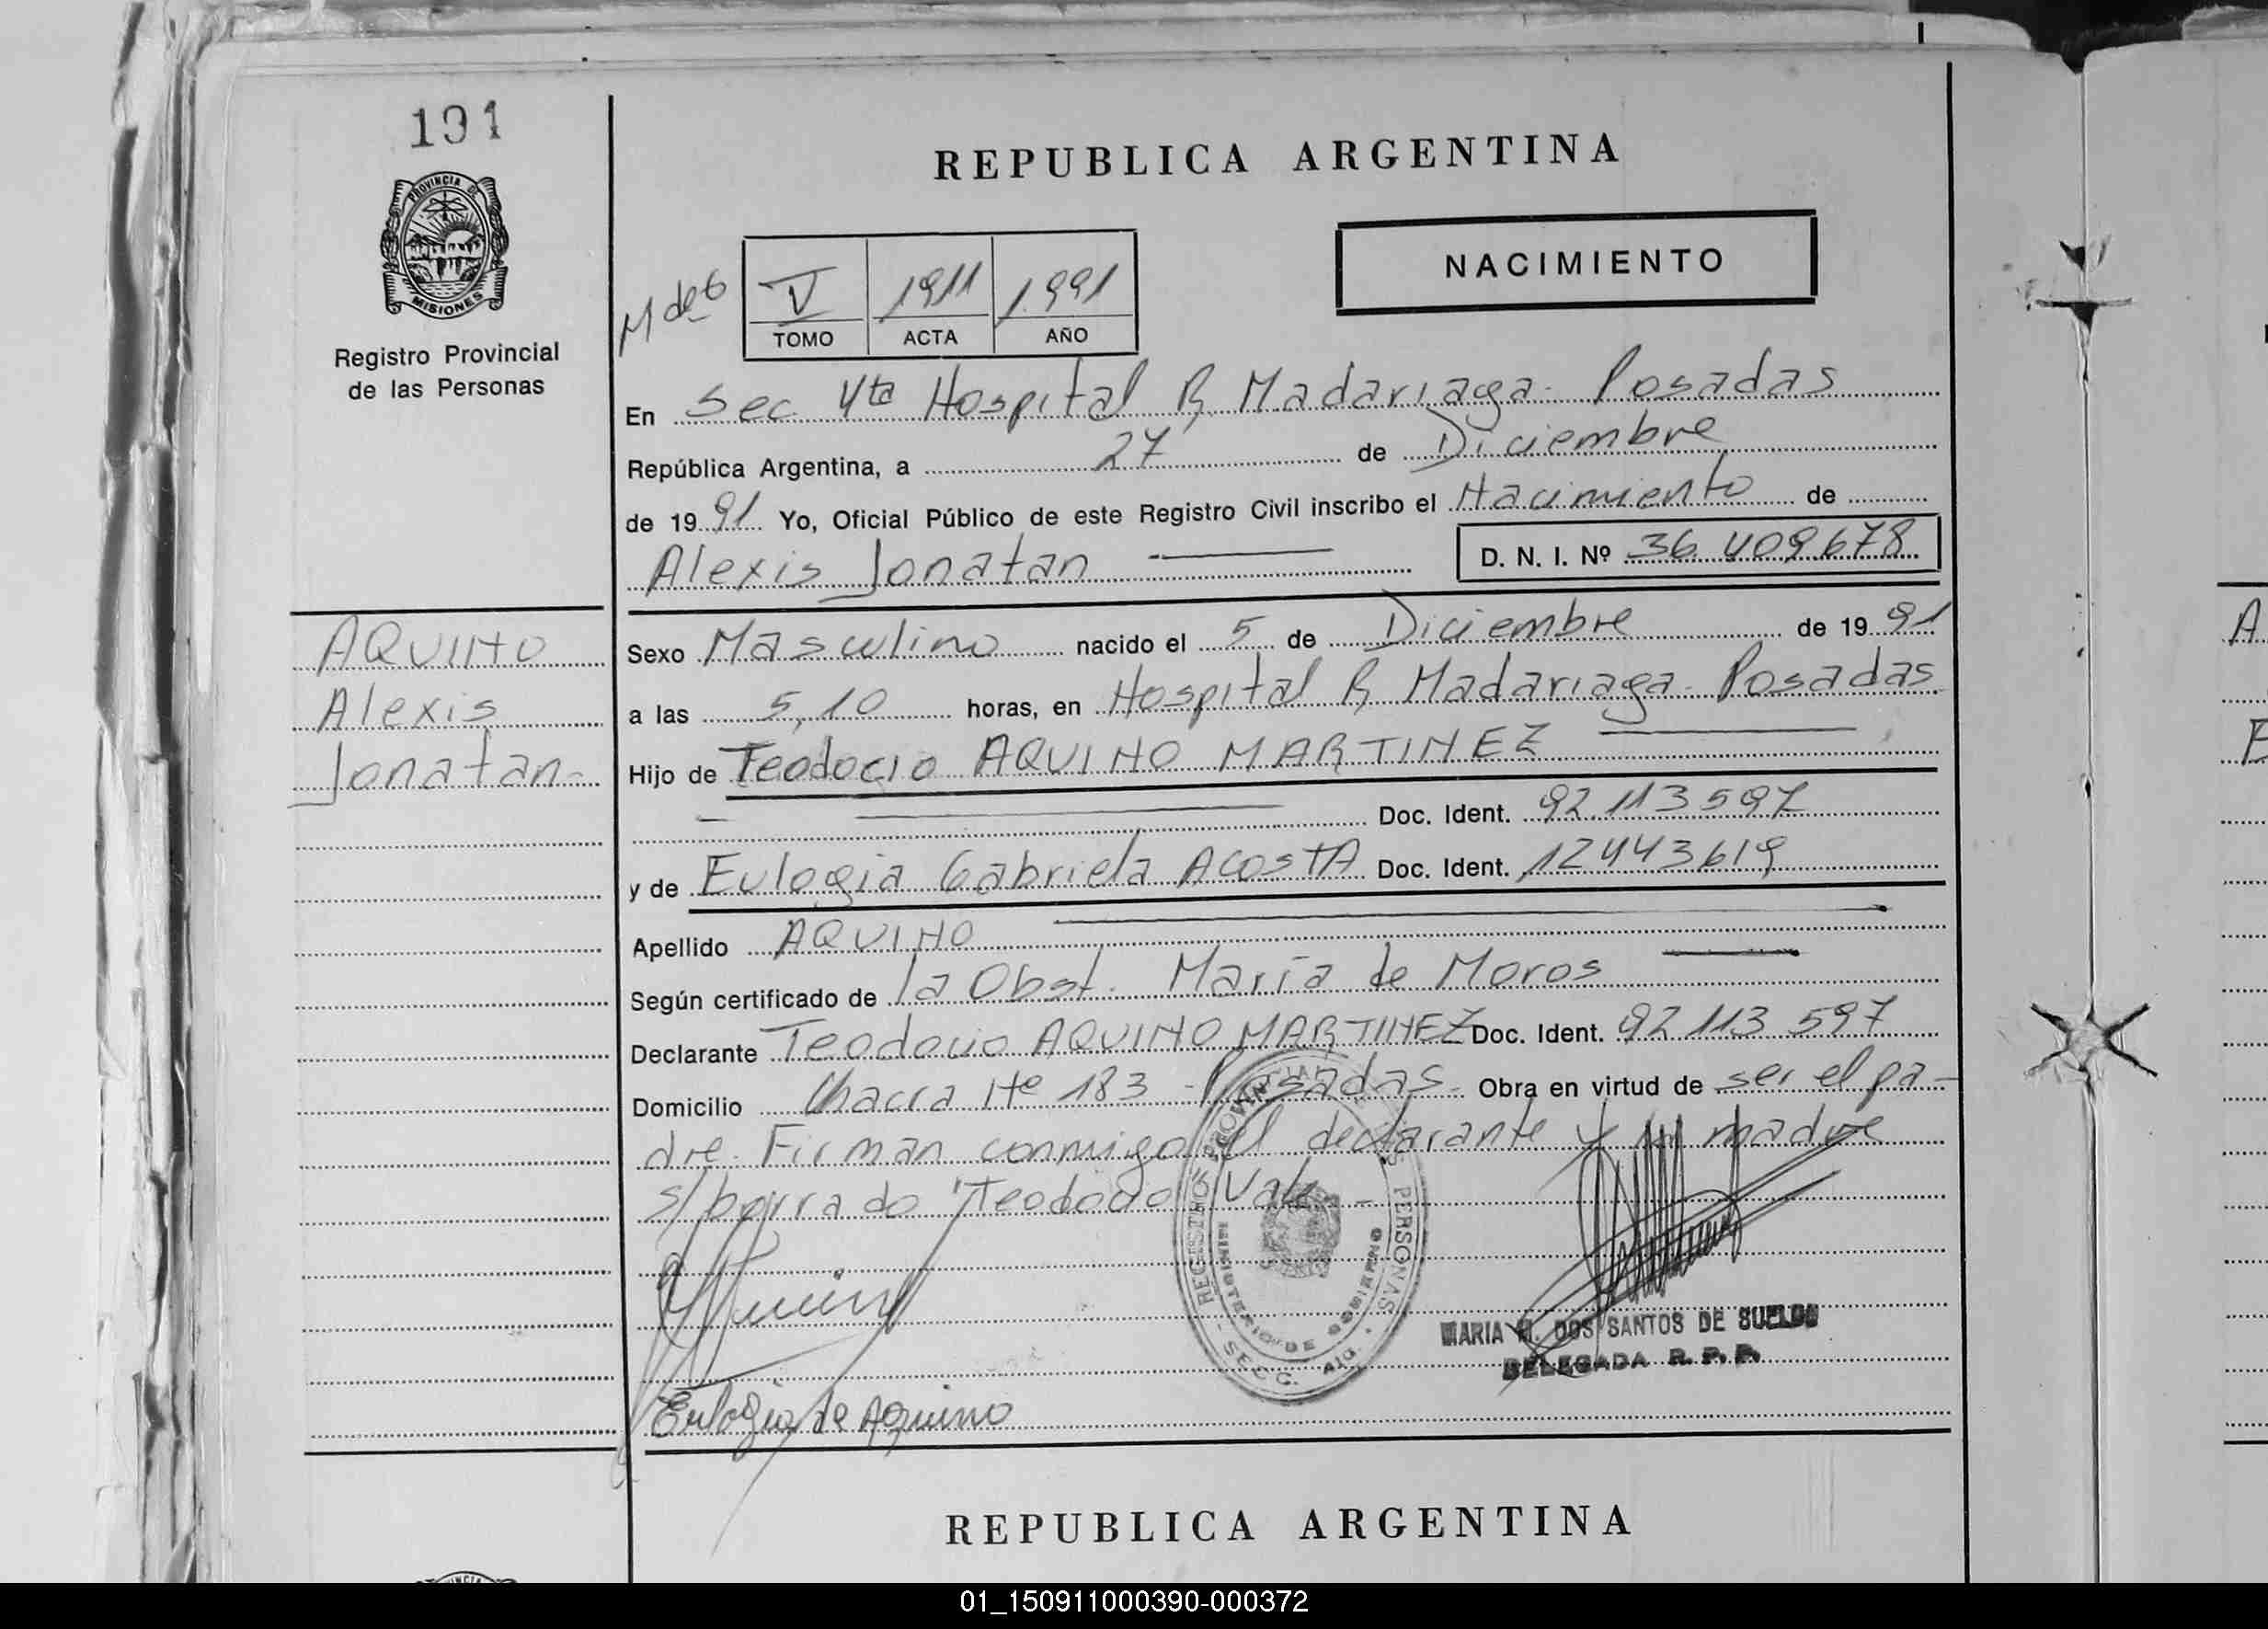 191
PROVINCIA DE
MISIONES
Registro Provincial
de las Personas
REPUBLICA ARGENTINA
NACIMIENTO
M de 6
V 1911 1.991
TOMO ACTA AÑO
En Sec 4ta Hospital R. Madariaga - Posadas
República Argentina, a 27 de Diciembre
de 1991 Yo, Oficial Público de este Registro Civil inscribo el Nacimiento de
Alexis Jonatan
D. N. I. Nº 36.409678
AQUINO
Alexis
Jonatan-
Sexo Masculino nacido el 5 de Diciembre de 1991
a las 5,10 horas, en Hospital R. Madariaga - Posadas
Hijo de Teodocio AQUINO MARTINEZ
Doc. Ident. 92.113597
y de Eulogia Gabriela ACOSTA Doc. Ident. 12443619
Apellido AQUINO
Según certificado de la Obst. María de Moros
Declarante Teodocio AQUINO MARTINEZ Doc. Ident. 92 113 597
Domicilio Chacra Nº 183 - Posadas. Obra en virtud de ser el pa-
dre. Firman conmigo el declarante y la madre
s/borrado "Teodocio" Vale
REGISTRO PROVINCIAL PERSONAS
MINISTERIO DE GOBIERNO
SECC.
MARIA DOS SANTOS DE
DELEGADA R. P. P.
Eulogia de Aquino
REPUBLICA ARGENTINA
01_150911000390-000372